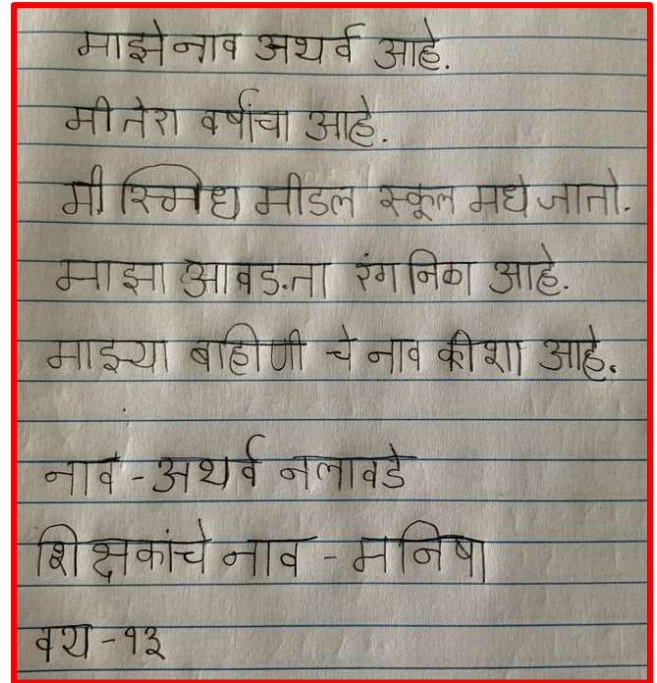 माझे नाव अथर्व आहे.
मी तेरा वर्षांचा आहे.
मी स्मिथ मीडल स्कूल मधे जातो.
माझा आवड.ता रंग निळा आहे.
माझ्या बाहीणी चे नाव कीशा आहे.
नाव - अथर्व नलावडे
शिक्षकांचे नाव - मनिषा
वय - १३